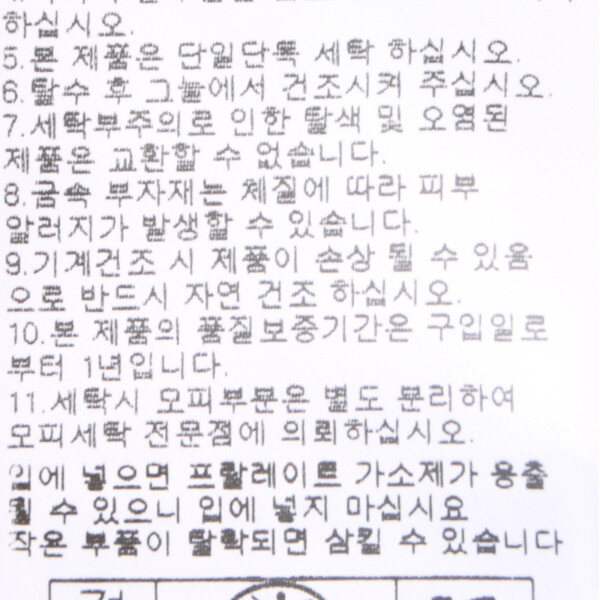 하십시오.
5.본 제품은 단일단독 세탁 하십시오.
6.탈수 후 그늘에서 건조시켜 주십시오.
7.세탁부주의로 인한 탈색 및 오염된
제품은 교환할 수 없습니다.
8.금속 부자재는 체질에 따라 피부
알러지가 발생할 수 있습니다.
9.기계건조 시 제품이 손상 될 수 있음
으로 반드시 자연 건조 하십시오.
10.본 제품의 품질보증기간은 구입일로
부터 1년입니다.
11.세탁시 모피부분은 별도 분리하여
모피세탁 전문점에 의뢰하십시오.
입에 넣으면 프탈레이트 가소제가 용출
될 수 있으니 입에 넣지 마십시요
작은 부품이 탈락되면 삼킬 수 있습니다